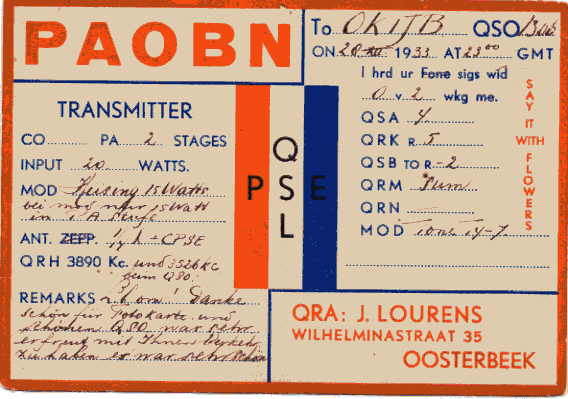 PAOBN
To OK1JB QSO
ON 28 XII 1933 AT 23⁰⁰ GMT
I hrd ur Fone sigs wid
0 v 2 wkg me.
QSA 4
QRK R 5
QSB TO R - 2
QRM
QRN
MOD
SAY IT WITH FLOWERS
TRANSMITTER
CO PA 2 STAGES
INPUT 20 WATTS.
MOD Heising 15 Watts
bei mod nur 15 Watt
in PA Stufe
ANT. ZEPP.
QRH 3890 Kc. und 3526 KC
QSL
PSE
REMARKS Danke
schön für Fotokarte und
schönen QSO war sehr
erfreut mit Ihnen
zu haben es war sehr schön
QRA: J. LOURENS
WILHELMINASTRAAT 35
OOSTERBEEK